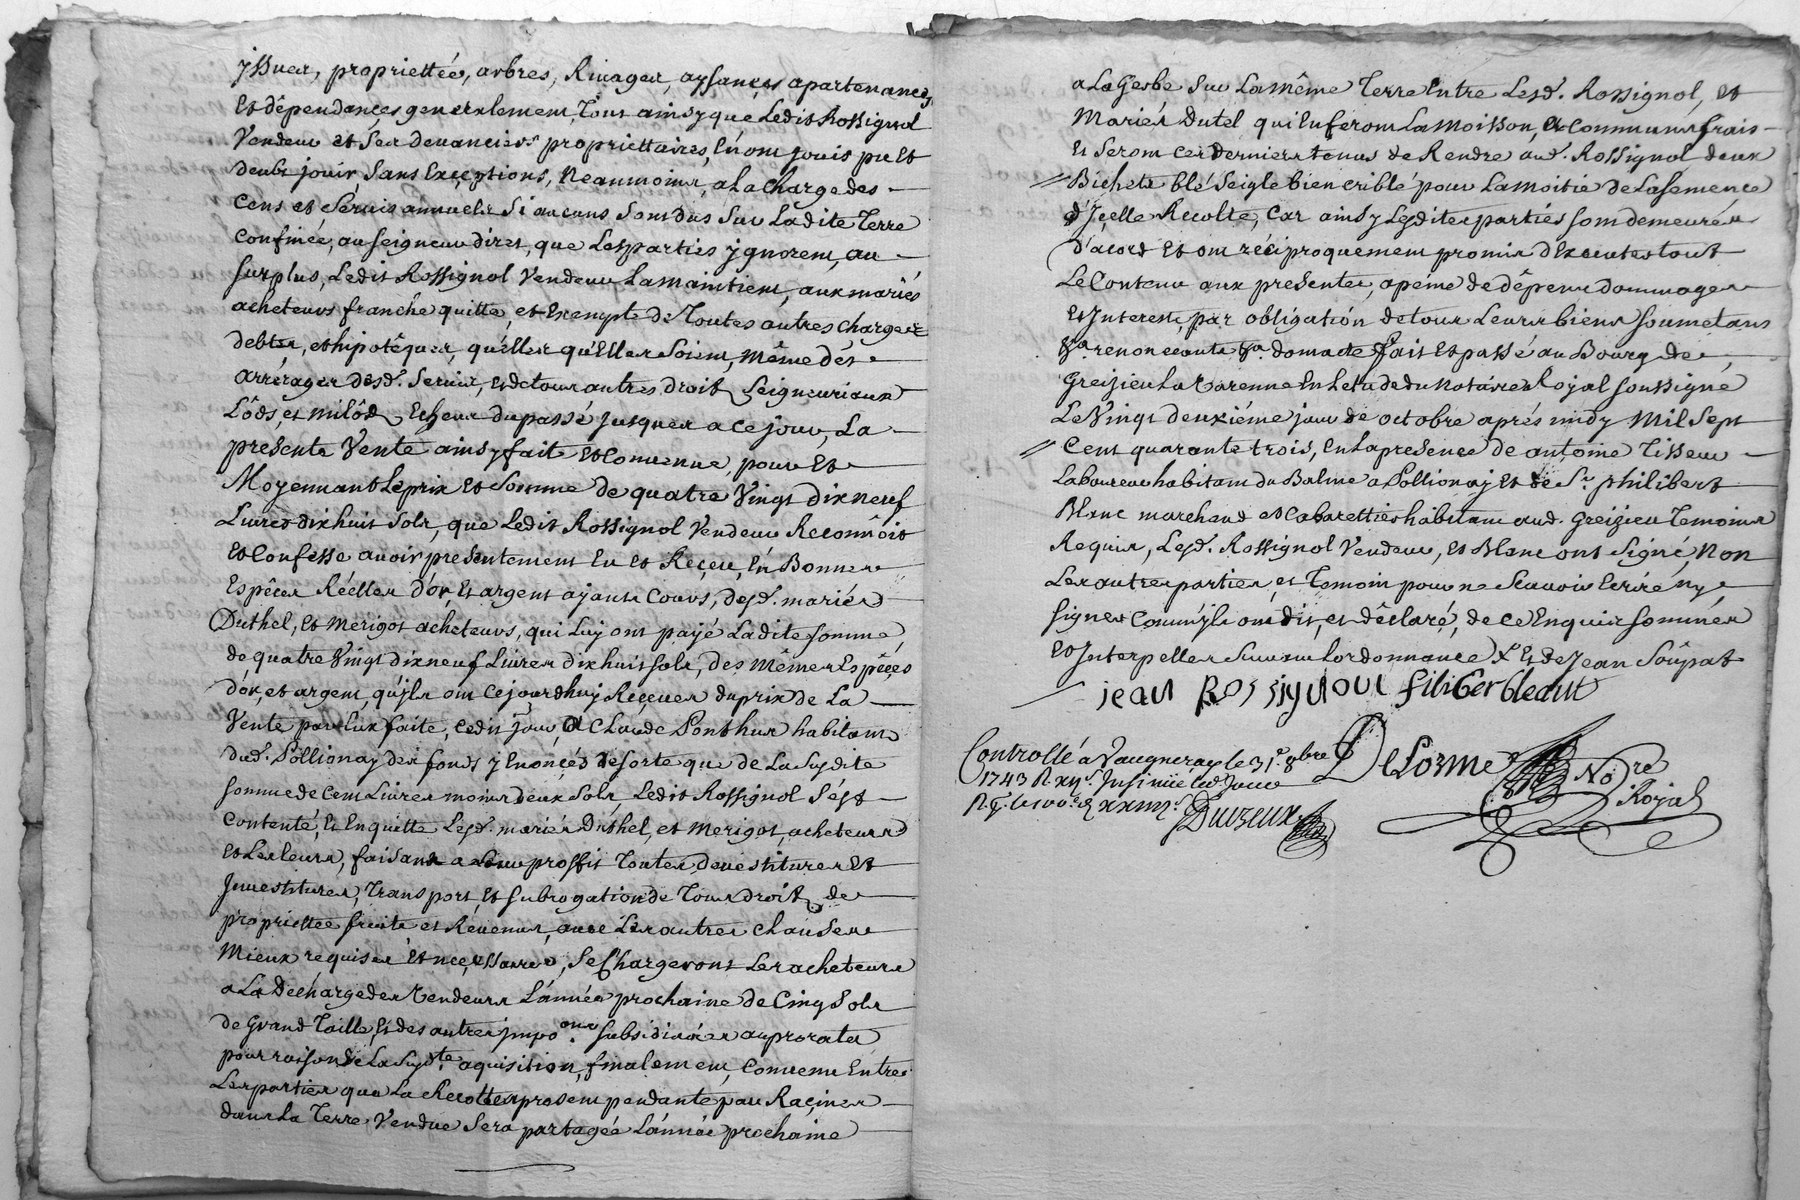 yssues, propriettée, arbres, Rivages, aysances apartenances
Et dêpendances generalement, Tout ainsy que Ledit Rossignol
Vendeur et Ses devanciers propriettaires, En ont jouis peu Et
deubt jouir Sans Exçeptions, Neanmoins, a La charge des
Cens et Servis annuels Si aucuns Sont dus Sur Ladite Terre
Confinée, au Seigneur diret, que Les parties ygnorent, au
Surplus, Ledit Rossignol Vendeur La maintient, aux mariés
acheteurs franche quitte, et Exempte de Toutes autres charges
debtes, et hipotêques, quélles quélles Soient, Même dés
arrérages desd. Servis, et de tous autres droit Seigneuriaux
Lôds, et milôd, Echeus du passé Jusques a ce jour, La
presente Vente ainsy faite Et Convenue, pour Et
Moyennant Le prix Et Somme de quatre Vingt dix neuf
Livres dix huit Sols, que Ledit Rossignol Vendeur Reconnoit
Et Confesse avoir presentement Eu et Reçeu, En Bonnes
Espêces Réelles d'or, Et argent ajant Cours, desd. mariés
Duthel, et Merigot acheteurs, qui Luy ont payé Ladite Somme
de quatre Vingt dix neuf Livres dix huit Sols, des Mêmes Espêçes
d'or, et argent, qu'jls ont cejourdhuy Reçeues du prix de La
Vente par Eux faite, cedit jour, a Claude Ponthus habitant
dud. Pollionay des fonds y Enoncéd desorte que de La Susdite
Somme de Cent Livres moins deux Sols, Ledit Rossignol S'est
Contenté, Et Enquitte Lesd. mariés Duthel, et Merigot, acheteurs
Et Les Leurs, faisant a Leur proffit Toutes devestitures Et
Jnvestitures, Transport, Et Subrogation de Tous droit de
propriettée fruits et Revenus, avec Les autres Clauses
Mieux requises Et neçessaires, Se Chargeront Les acheteurs
a La décharge des Vendeurs L'année prochaine de Cinq Sols
de Grand Taille, Et des autres jmpo.ons Subsidiaires au prorata
pour raison de La Susd.te aquisition, finalement, Convenu Entre
Les parties que La Recolte present pendante par Raçines
dans La Terre Vendue Sera partagée L'année prochaine
a La Gerbe Sur La même Terre Entre Lesd. Rossignol, et
Mariés Dutel qui En feront La Moisson, a Communs frais
Et Seront Ces derniers tenus de Rendre aud. Rossignol deux
Bichets blé Seigle bien criblé pour La moitié de La Semence
d'Jçelle Recolte, Car ainsy Lesdites parties Sont demeurées
D'acord Et ont réciproquement promis d'Executer tout
Le Contenu aux presentes, a peine de dêpens dommages
Et Jnterests, par obligation de tous Leurs biens Soumetans
&a renoncants &a. dont acte fait Et passé au Bourg de
Greizieu La Varenne En Letude du Notaire Royal Soussigné
Le Vingt deuxiéme jour de octobre aprés midy Mil Sept
Cent quarante trois, En La presence de antoine Tisseur
Laboureur habitant du Balme a Pollionaj Et de Sr. philibert
Blanc marchand et Cabarettier habitant aud. Greizieu Temoins
Requis, Lesd. Rossignol Vendeur, Et Blanc ont Signé, Non
Les autres parties, et Temoin pour ne Scavoir Ecrire ny
Signer Comm'jls ont dit, et dêclaré, de ce Enquis Sommés
Et Jnterpellés Suivant Lordonnance X Et de Jean Soûpat
jean Rossignoul filiberbleant
Controllé a Vaugneray le 31e. 8bre
1743 R xijs. Jnsinüé led. Jour
DeLorme Nore. Royal
Duvzeux